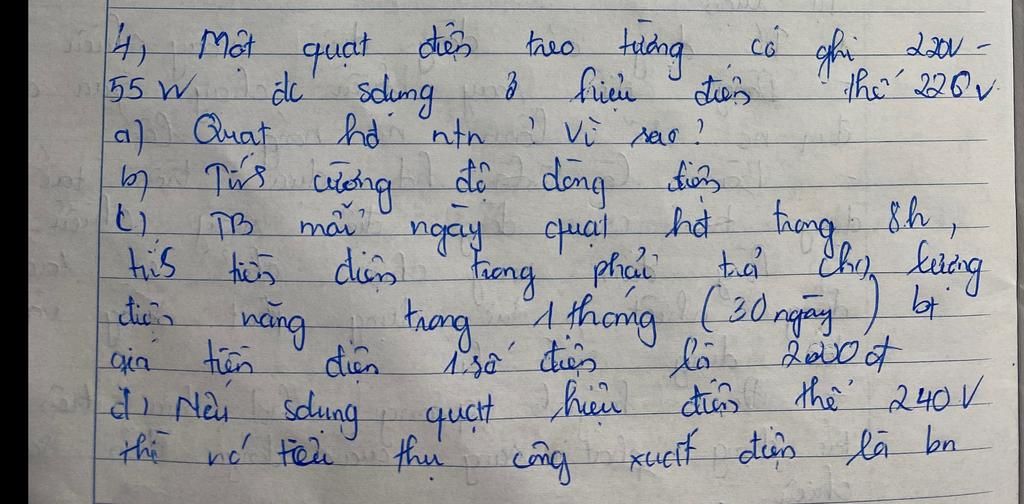 4, Một quạt điện treo tường có ghi 220V -
55 W đc sdụng ở hiệu điện thế 220V.
a) Quạt hđ ntn ? Vì sao?
b) Tính cường độ dòng điện
c) TB mỗi ngày quạt hđ trong 8h,
tính tiền điện trong phải trả cho lượng
điện năng trong 1 tháng (30 ngày) bt
giá tiền điện 1 số điện là 2000đ
d) Nếu sdụng quạt hiệu điện thế 240V
thì nó tiêu thụ công xuất điện là bn